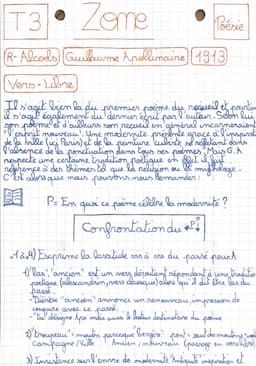 T3
Zone
Poésie
R- Alcools Guillaume Apollinaire 1913
Vers-Libre
Il s'agit bien là du premier poème du recueil et pourtant
il s'agit également du dernier écrit par l'auteur. Selon lui
son poème et d'ailleurs son recueil en général incarneraient
l'esprit nouveau". Une modernité présente grâce à l'inspiration
de la ville (ici Paris) et de la peinture cubiste se reflétant dans
l'absence de la ponctuation dans tous ses poèmes. Mais G.A
respecte une certaine tradition poétique en effet il fait
référence à des thèmes tel que la religion ou la mythologie.
C'est alors que nous pouvons nous demander :
P= En quoi ce poème célèbre la modernité ?
Confrontation du
v1 à 4) Exprime la lassitude vis à vis du passé pour
1) "las", "ancien" est un vers déroutant répondant à une tradition
poétique (alexandrin, vers classique) alors qu'il dit être las du
passé.
- Diérèse "ancien" annonce un renouveau, impression de
rupture avec ce passé.
- "tu" désigne
2) "troupeau" = moutons parce que "bergère" pont = seul des moutons
Campagne / Ville Ancien / nouveau (passage en vers libre)
3) Insistance sur l'envie de modernité "Antiquité" inspiration et